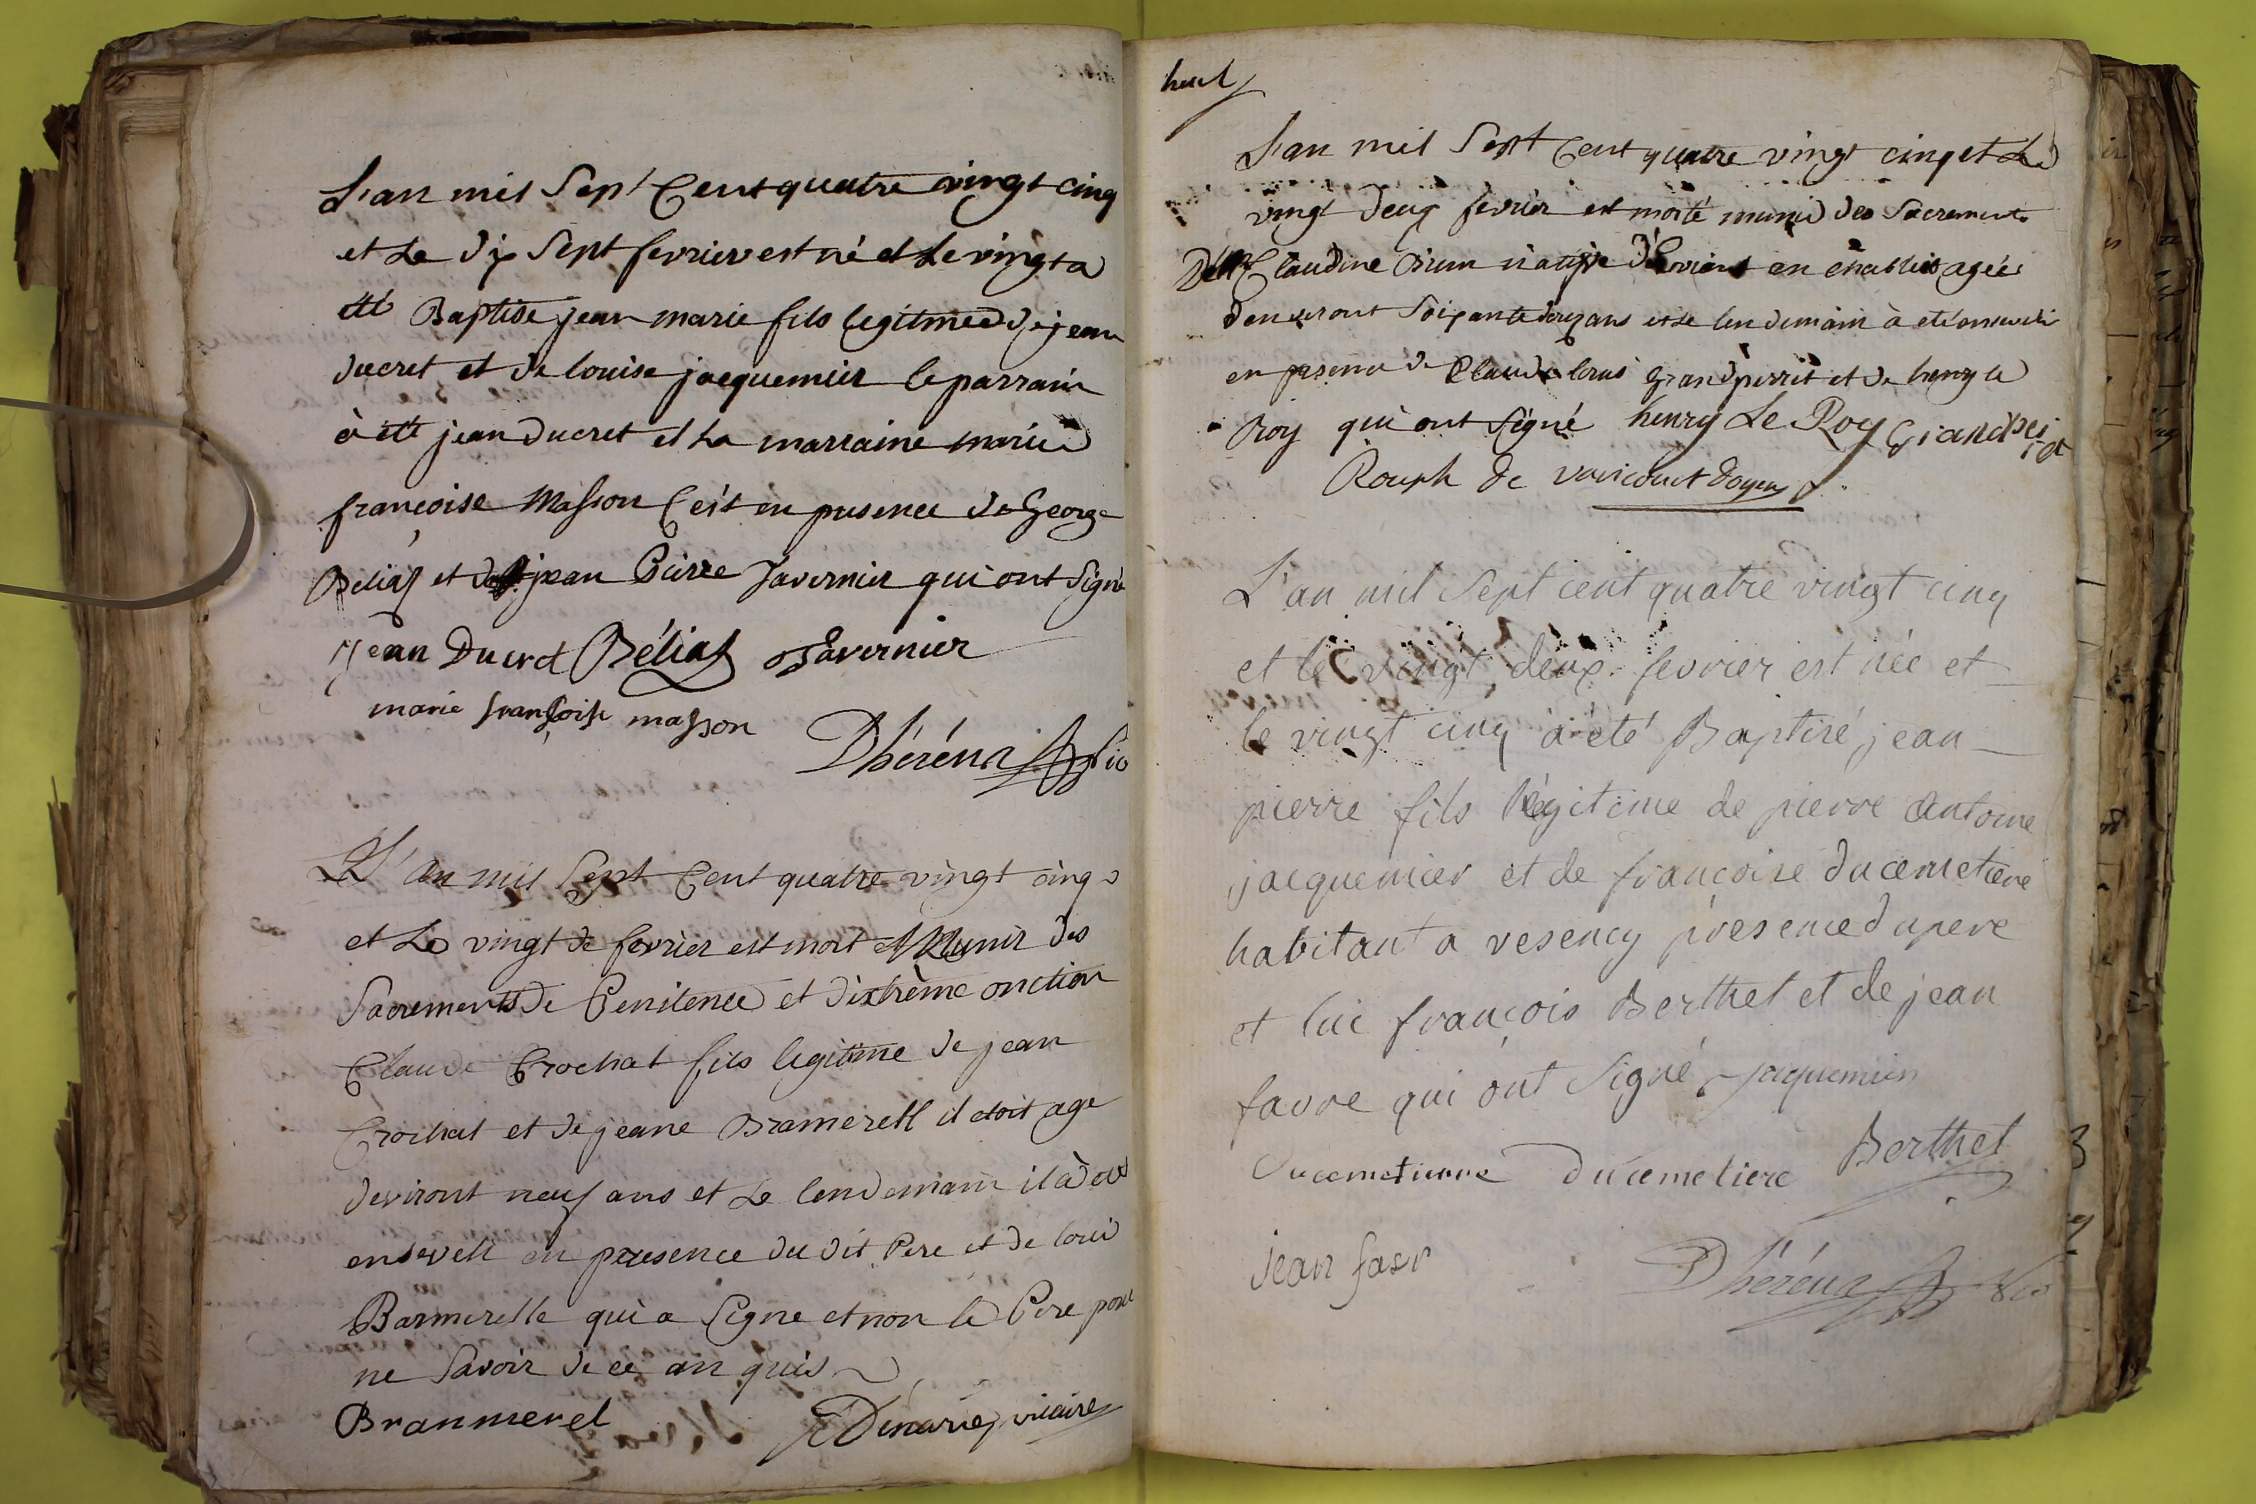 L'an mil Sept Cent quatre vingt cinq
et Le dix Sept fevrier est né et Le vingt a
été Baptisé jean marie fils legitime de jean
ducret et de louise jacquemier le parrain
à été jean ducret et La marraine marie
françoise Masson C'est en presence de George
Béliaf et de jean Pierre Tavernier qui ont Signé
jean Ducret Béliaf Tavernier
marie françoise masson
Dhéréna vic
L'an mil Sept Cent quatre vingt cinq
et Le vingt de fevrier est mort Munir des
Sacrements de Penitence et d'extrème onction
Claude Crochat fils legitime de jean
Crochat et de jeane Bramerell il etoit age
deviront neuf ans et Le lendemain il à été
enseveli en presence du dit Pere et de loui
Barmerelle qui a Signe et non le Pere pour
ne Savoir de ce an quis
Branmerel vicaire
huit
L'an mil Sept Cent quatre vingt cinq et Le
vingt deux fevrier est morte munie des Sacrements
Claudine native en Chablais agée
denviront Soixante ans et le lendemain à eté enseveli
en presence de Claude grandperret et de henry le
Roy qui ont Signé henry Le Roy Grandperret
Rouph de varicourt doyen
L'an mil Sept cent quatre vingt cinq
et le vingt deux fevrier est née et
le vingt cinq a été Baptisé jean
pierre fils légitime de pierre antoine
jacquemier et de françoise ducemetiere
habitant a vesency presence du pere
et luc françois Berthet et de jean
favre qui ont Signé jaquemier
Ducemetierre ducemetiere Berthet
jean favr
Dhéréna vic